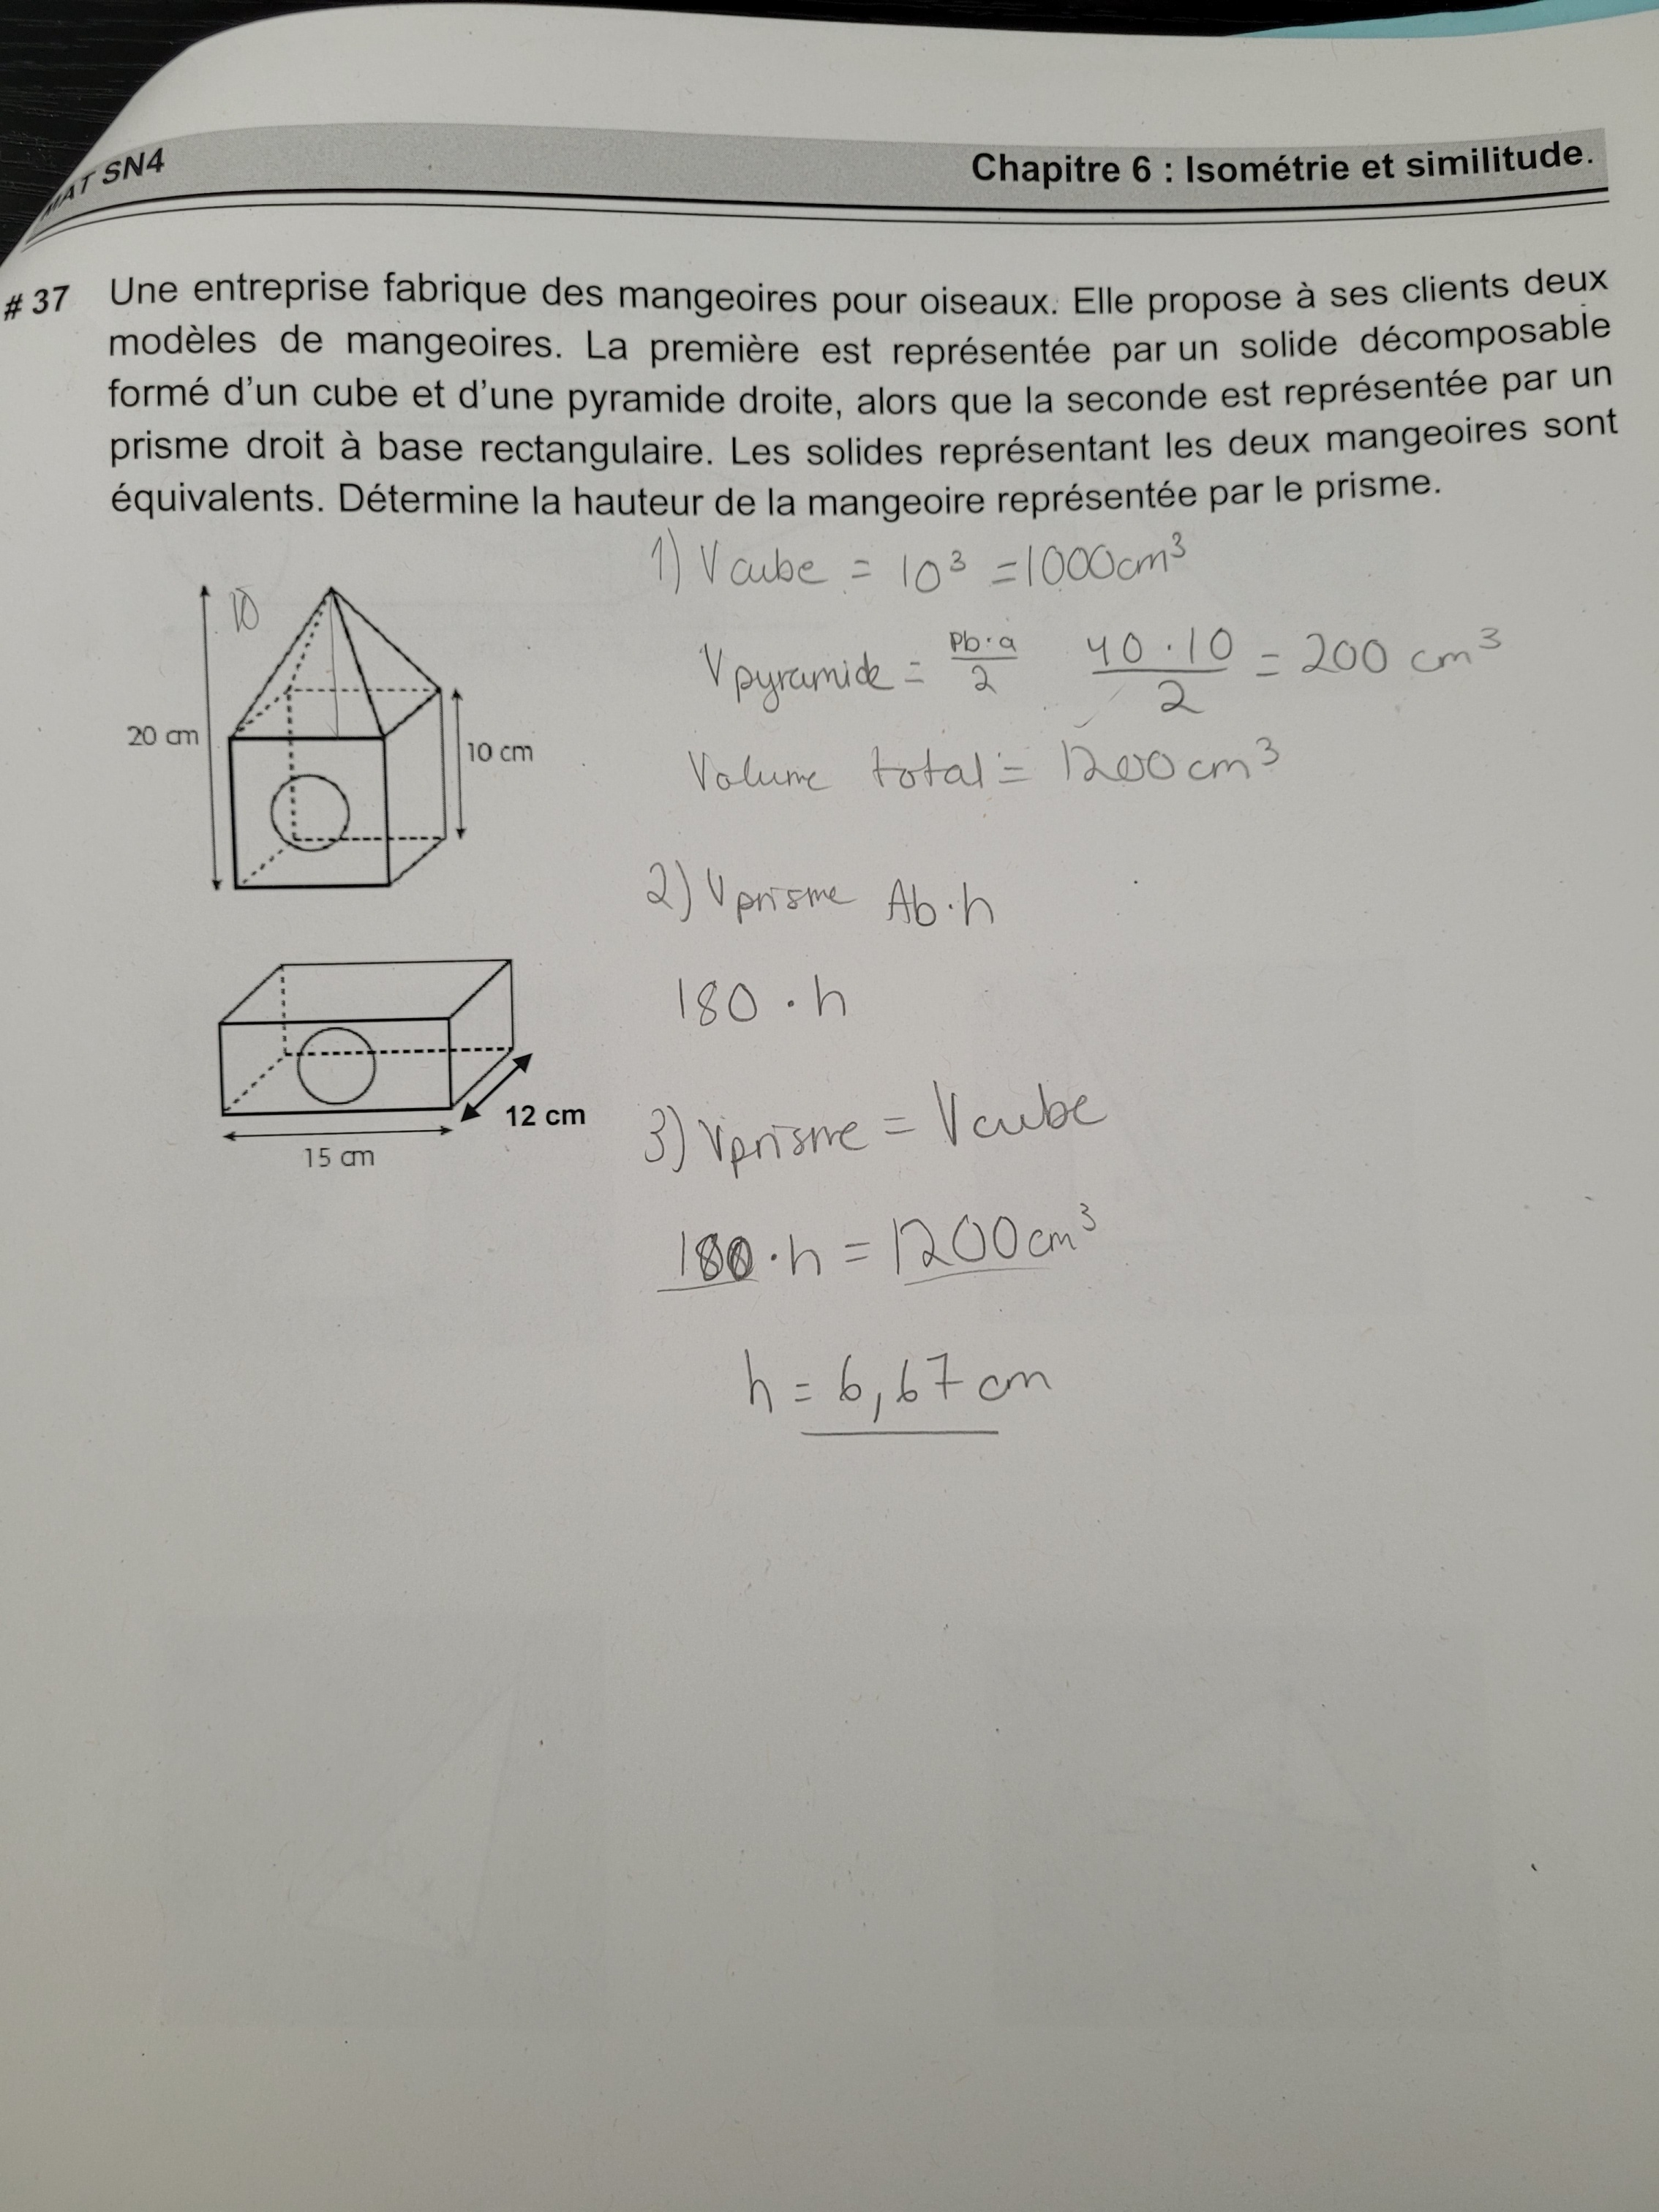 MAT SN4
Chapitre 6 : Isométrie et similitude.
# 37 Une entreprise fabrique des mangeoires pour oiseaux. Elle propose à ses clients deux
modèles de mangeoires. La première est représentée par un solide décomposable
formé d'un cube et d'une pyramide droite, alors que la seconde est représentée par un
prisme droit à base rectangulaire. Les solides représentant les deux mangeoires sont
équivalents. Détermine la hauteur de la mangeoire représentée par le prisme.
1) V cube = 10³ = 1000cm³
10
V pyramide = Pb·a/2 40·10/2 = 200 cm³
20 cm
10 cm
Volume total = 1200cm³
2) V prisme Ab·h
180 · h
12 cm
15 cm
3) Vprisme = V cube
180 · h = 1200cm³
h = 6,67 cm